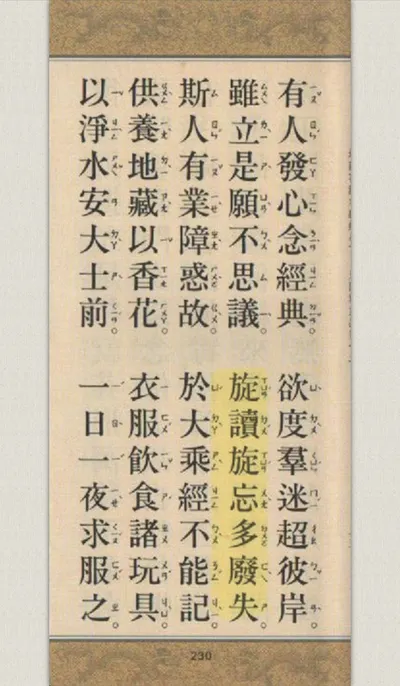 有人發心念經典。欲度羣迷超彼岸。
雖立是願不思議。旋讀旋忘多廢失。
斯人有業障惑故。於大乘經不能記。
供養地藏以香花。衣服飲食諸玩具。
以淨水安大士前。一日一夜求服之。
230